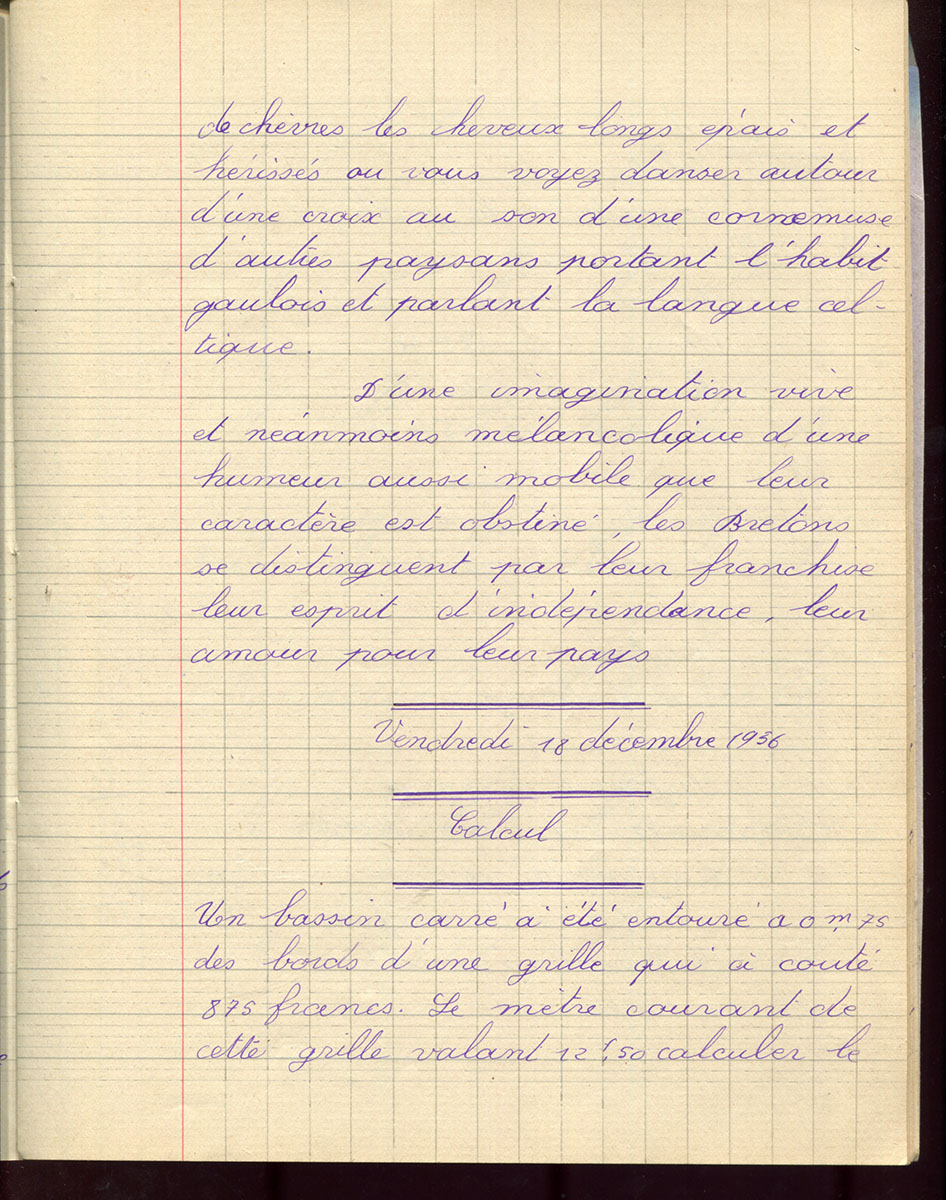 de chèvres les cheveux longs épais et
hérissés ou vous voyez danser autour
d'une croix au son d'une cornemuse
d'autres paysans portant l'habit
gaulois et parlant la langue cel-
tique.
D'une imagination vive
et néanmoins mélancolique d'une
humeur aussi mobile que leur
caractère est obstiné, les Bretons
se distinguent par leur franchise
leur esprit d'indépendance, leur
amour pour leur pays
Vendredi 18 décembre 1936
Calcul
Un bassin carré à été entouré a 0m,75
des bords d'une grille qui à couté
875 francs. Le mètre courant de
cette grille valant 12f,50 calculer le